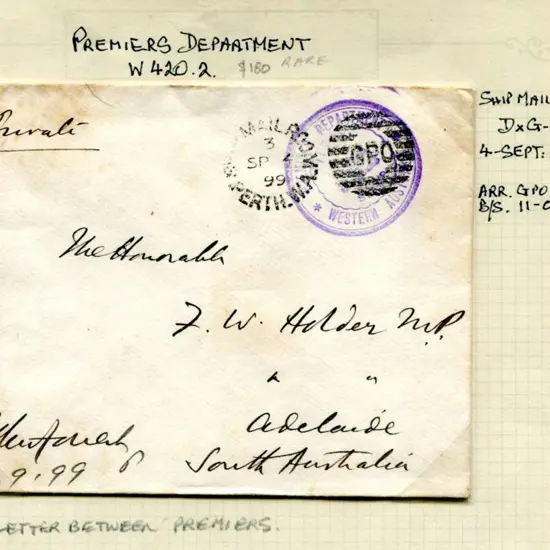 PREMIERS DEPARTMENT
W420.2. $180 RARE
SHIP MAIL
DXG-
4-SEPT:
ARR. GPO
B/S. 11-
Private
MAIL R
3
SP
99
PERTH.W.A.
GPO
DEPARTMENT
* WESTERN AUST
The Honorable
F. W. Holder M.P.
" "
Adelaide
South Australia
9.99
LETTER BETWEEN PREMIERS.